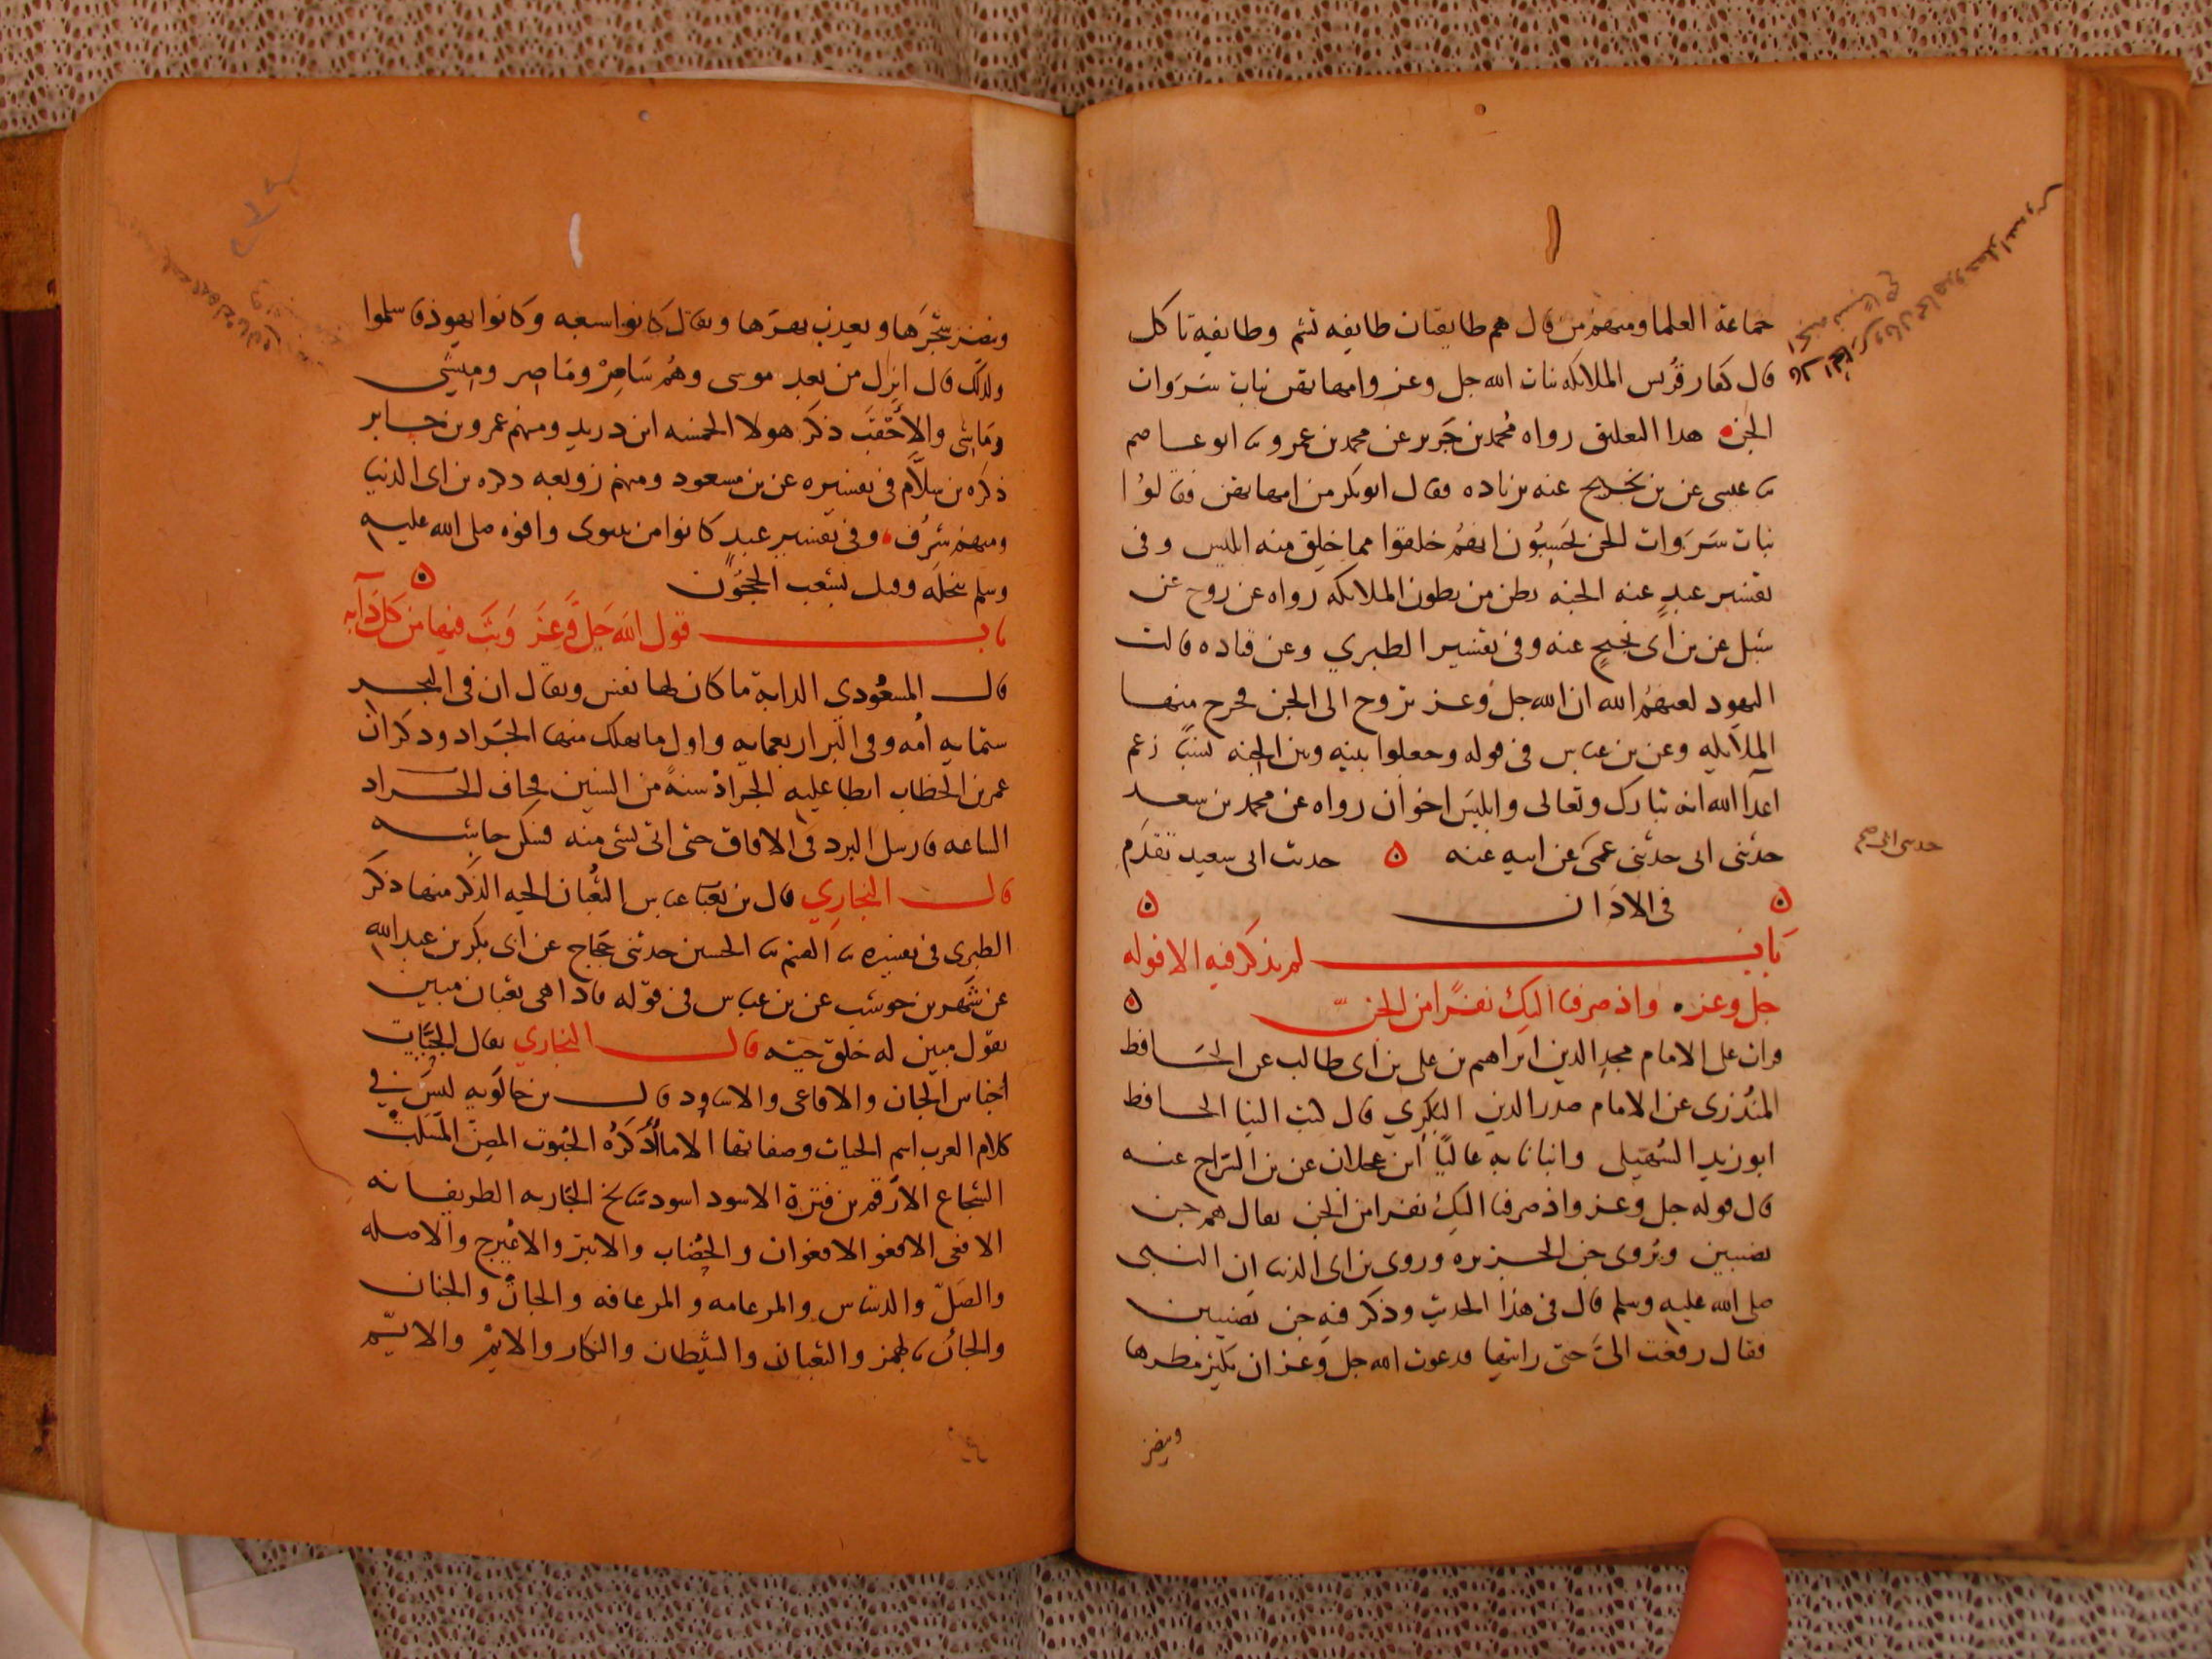 جماعة العلما ومنهم من قال هم طايفتان طايفه تشم وطايفه تاكل
قال كفار قريش الملايكه بنات الله جل وعز وامهاتهن بنات سَرَوات
الجن هذا التعليق رواه محمد بن جَرير عن محمد بن عمرو ثنا ابو عاصم
ثنا عيسى عن بن نجيح عنه بزياده فقال ابو بكر من امهاتهن فقالوا
بنات سَرَوات الجن يحَسِبُون انهم خلقوا مما خلق منه ابليس وفى
تفسير عبدٍ عنه الجنه بطن من بطون الملايكه رواه عن روح عن
شبل عن بن ابى نجيحٍ عنه وفى تفسير الطبري وعن قتاده قالت
اليهود لعنهم الله ان الله جل وعز تزوج الى الجن فخرج منهما
الملايكه وعن بن عباس فى قوله وجعلوا بينه وبين الجنه نسبًا زعم
اعدآ الله انه تبارك وتعالى وابليس اخوان رواه عن محمد بن سعد
حدثنى ابى حدثنى عمى عن ابيه عنه ۵ حديث ابى سعيد تقدم
فى الاذان
باب لم يذكر فيه الا قوله
جل وعز واذ صرفنا اليك نفرًا من الجن
قرات على الامام مجد الدين ابراهيم بن على بن ابى طالب عن الحافظ
المنذرى عن الامام صدر الدين البكري قال كتب الينا الحافظ
ابو زيد السُهَيلى وانبانا به عاليًا ابن عجلان عن بن السراج عنه
قال قوله جل وعز واذ صرفنا اليك نفرا من الجن يقال هم جن
نصيبين ويروى جن الجزيره وروى بن ابى الدنيا ان النبى
صلى الله عليه وسلم قال فى هذا الحديث وذكر فيه جن نصيبين
فقال رفعت الىَّ حتى رايتها فدعوت الله جل وعز ان يكثر مطرها
وينضر
حدثنى ابى صح
وينضر شجرها ويعذب نهرها ويقال كانوا سبعه وكانوا يهودا فاسلموا
ولذلك قال انزل من بعد موسى وهُم شَاصِرْ ومَاصِر ومنِشَى
ومَاشى والاَحْقَبَ ذكر هولا الخمسه ابن دريد ومنهم عمرو بن جابر
ذكره بن سلاّم فى تفسيره عن بن مسعود ومنهم زوبعه ذكره بن ابى الدنيا
ومنهم سُرَّق وفى تفسير عبدٍ كانوا من نينوى وافوه صلى الله عليه
وسلم بنخله وقيل بشعب الحَجُون
باب قول الله جَلَّ وعَزَّ وَبَثَّ فيها من كل دآبه
قال المسعُودي الدابة ما كان لها نفس ويقال ان فى البحر
ستمايه اُمه وفى البَر اربعمايه واول ما يهلك منها الجَراد وذكر ان
عمر بن الخطاب ابطا عليه الجراد سنةً من السنين فخاف الجراد
الساعه فارسل البرد فى الافاق حتى اتى بشى منه فسكن جاشه
قال البخاري قال بن عباس الثُعبان الحيه الذكر منها ذكر
الطبرى فى تفسيره ثنا القسم ثنا الحسين حدثنى حَجاج عن ابى بكر بن عبد الله
عن شَهر بن حوشب عن بن عباس فى قوله فاذا هى ثعبان مبين
يقول مبين له خلق حيّه قال البخاري يقال الحَيَّات
اجناس الجان والافاعى والاساود قال بن خالَوَيه ليس في
كلام العرب اسم الحيات وصفاتها الا ما اذكُرُه
الشجاع الارقم بن قترة الاسود اسود سَالخ الجَاريه
الافعى الافعوان والحُضَاب والابتر والاعَيرج والاصله
والصَلّ والجانّ والجنان
والجانّ بالهمز والثعبان والشيطان والنكاز والايمْ والايّم